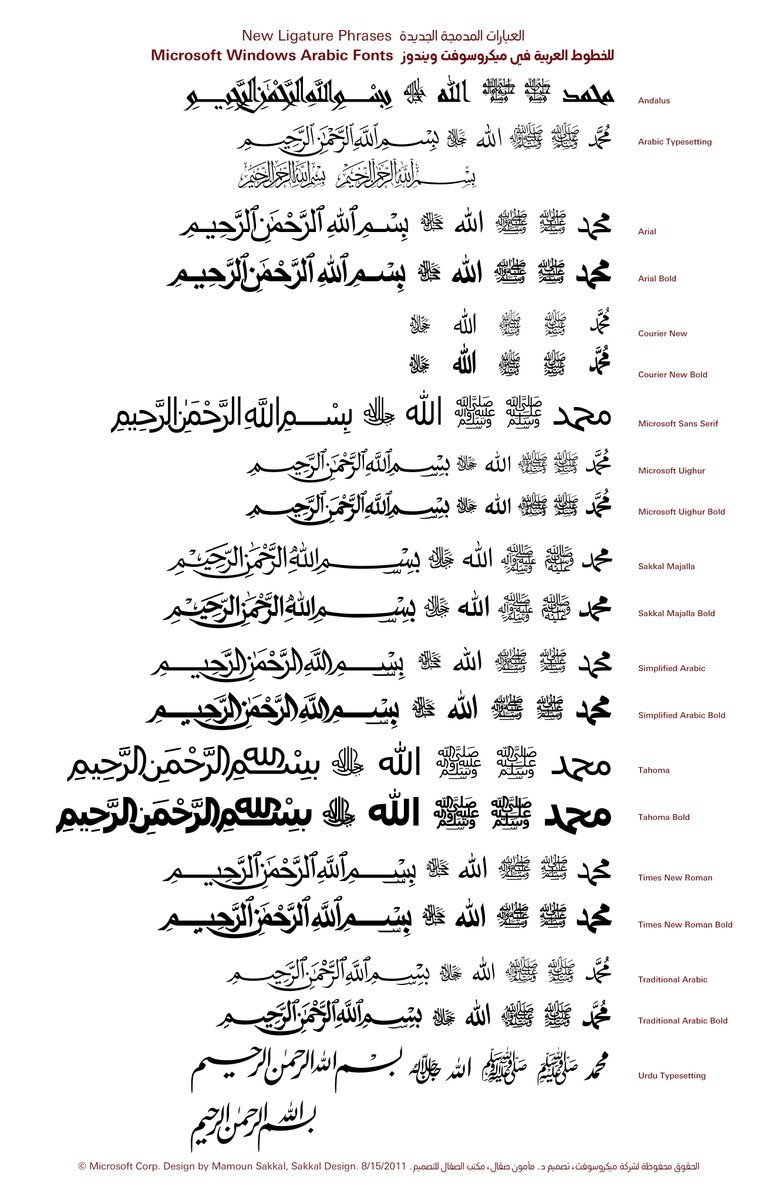 New Ligature Phrases العبارات المدمجة الجديدة
Microsoft Windows Arabic Fonts للخطوط العربية في ميكروسوفت ويندوز
محمد صلى الله عليه وسلم صلى الله عليه وآله وسلم الله جل جلاله بسم الله الرحمن الرحيم Andalus
محمد صلى الله عليه وسلم صلى الله عليه وآله وسلم الله جل جلاله بسم الله الرحمن الرحيم Arabic Typesetting
بسم الله الرحمن الرحيم بسم الله الرحمن الرحيم
محمد صلى الله عليه وسلم صلى الله عليه وآله وسلم الله جل جلاله بسم الله الرحمن الرحيم Arial
محمد صلى الله عليه وسلم صلى الله عليه وآله وسلم الله جل جلاله بسم الله الرحمن الرحيم Arial Bold
محمد صلى الله عليه وسلم صلى الله عليه وآله وسلم الله جل جلاله Courier New
محمد صلى الله عليه وسلم صلى الله عليه وآله وسلم الله جل جلاله Courier New Bold
محمد صلى الله عليه وسلم صلى الله عليه وآله وسلم الله جل جلاله بسم الله الرحمن الرحيم Microsoft Sans Serif
محمد صلى الله عليه وسلم صلى الله عليه وآله وسلم الله جل جلاله بسم الله الرحمن الرحيم Microsoft Uighur
محمد صلى الله عليه وسلم صلى الله عليه وآله وسلم الله جل جلاله بسم الله الرحمن الرحيم Microsoft Uighur Bold
محمد صلى الله عليه وسلم صلى الله عليه وآله وسلم الله جل جلاله بسم الله الرحمن الرحيم Sakkal Majalla
محمد صلى الله عليه وسلم صلى الله عليه وآله وسلم الله جل جلاله بسم الله الرحمن الرحيم Sakkal Majalla Bold
محمد صلى الله عليه وسلم صلى الله عليه وآله وسلم الله جل جلاله بسم الله الرحمن الرحيم Simplified Arabic
محمد صلى الله عليه وسلم صلى الله عليه وآله وسلم الله جل جلاله بسم الله الرحمن الرحيم Simplified Arabic Bold
محمد صلى الله عليه وسلم صلى الله عليه وآله وسلم الله جل جلاله بسم الله الرحمن الرحيم Tahoma
محمد صلى الله عليه وسلم صلى الله عليه وآله وسلم الله جل جلاله بسم الله الرحمن الرحيم Tahoma Bold
محمد صلى الله عليه وسلم صلى الله عليه وآله وسلم الله جل جلاله بسم الله الرحمن الرحيم Times New Roman
محمد صلى الله عليه وسلم صلى الله عليه وآله وسلم الله جل جلاله بسم الله الرحمن الرحيم Times New Roman Bold
محمد صلى الله عليه وسلم صلى الله عليه وآله وسلم الله جل جلاله بسم الله الرحمن الرحيم Traditional Arabic
محمد صلى الله عليه وسلم صلى الله عليه وآله وسلم الله جل جلاله بسم الله الرحمن الرحيم Traditional Arabic Bold
محمد صلى الله عليه وسلم صلى الله عليه وآله وسلم الله جل جلاله بسم الله الرحمن الرحيم Urdu Typesetting
بسم الله الرحمن الرحيم
© Microsoft Corp. Design by Mamoun Sakkal, Sakkal Design. 8/15/2011 الحقوق محفوظة لشركة ميكروسوفت، تصميم د. مأمون صقال، مكتب الصقال للتصميم.